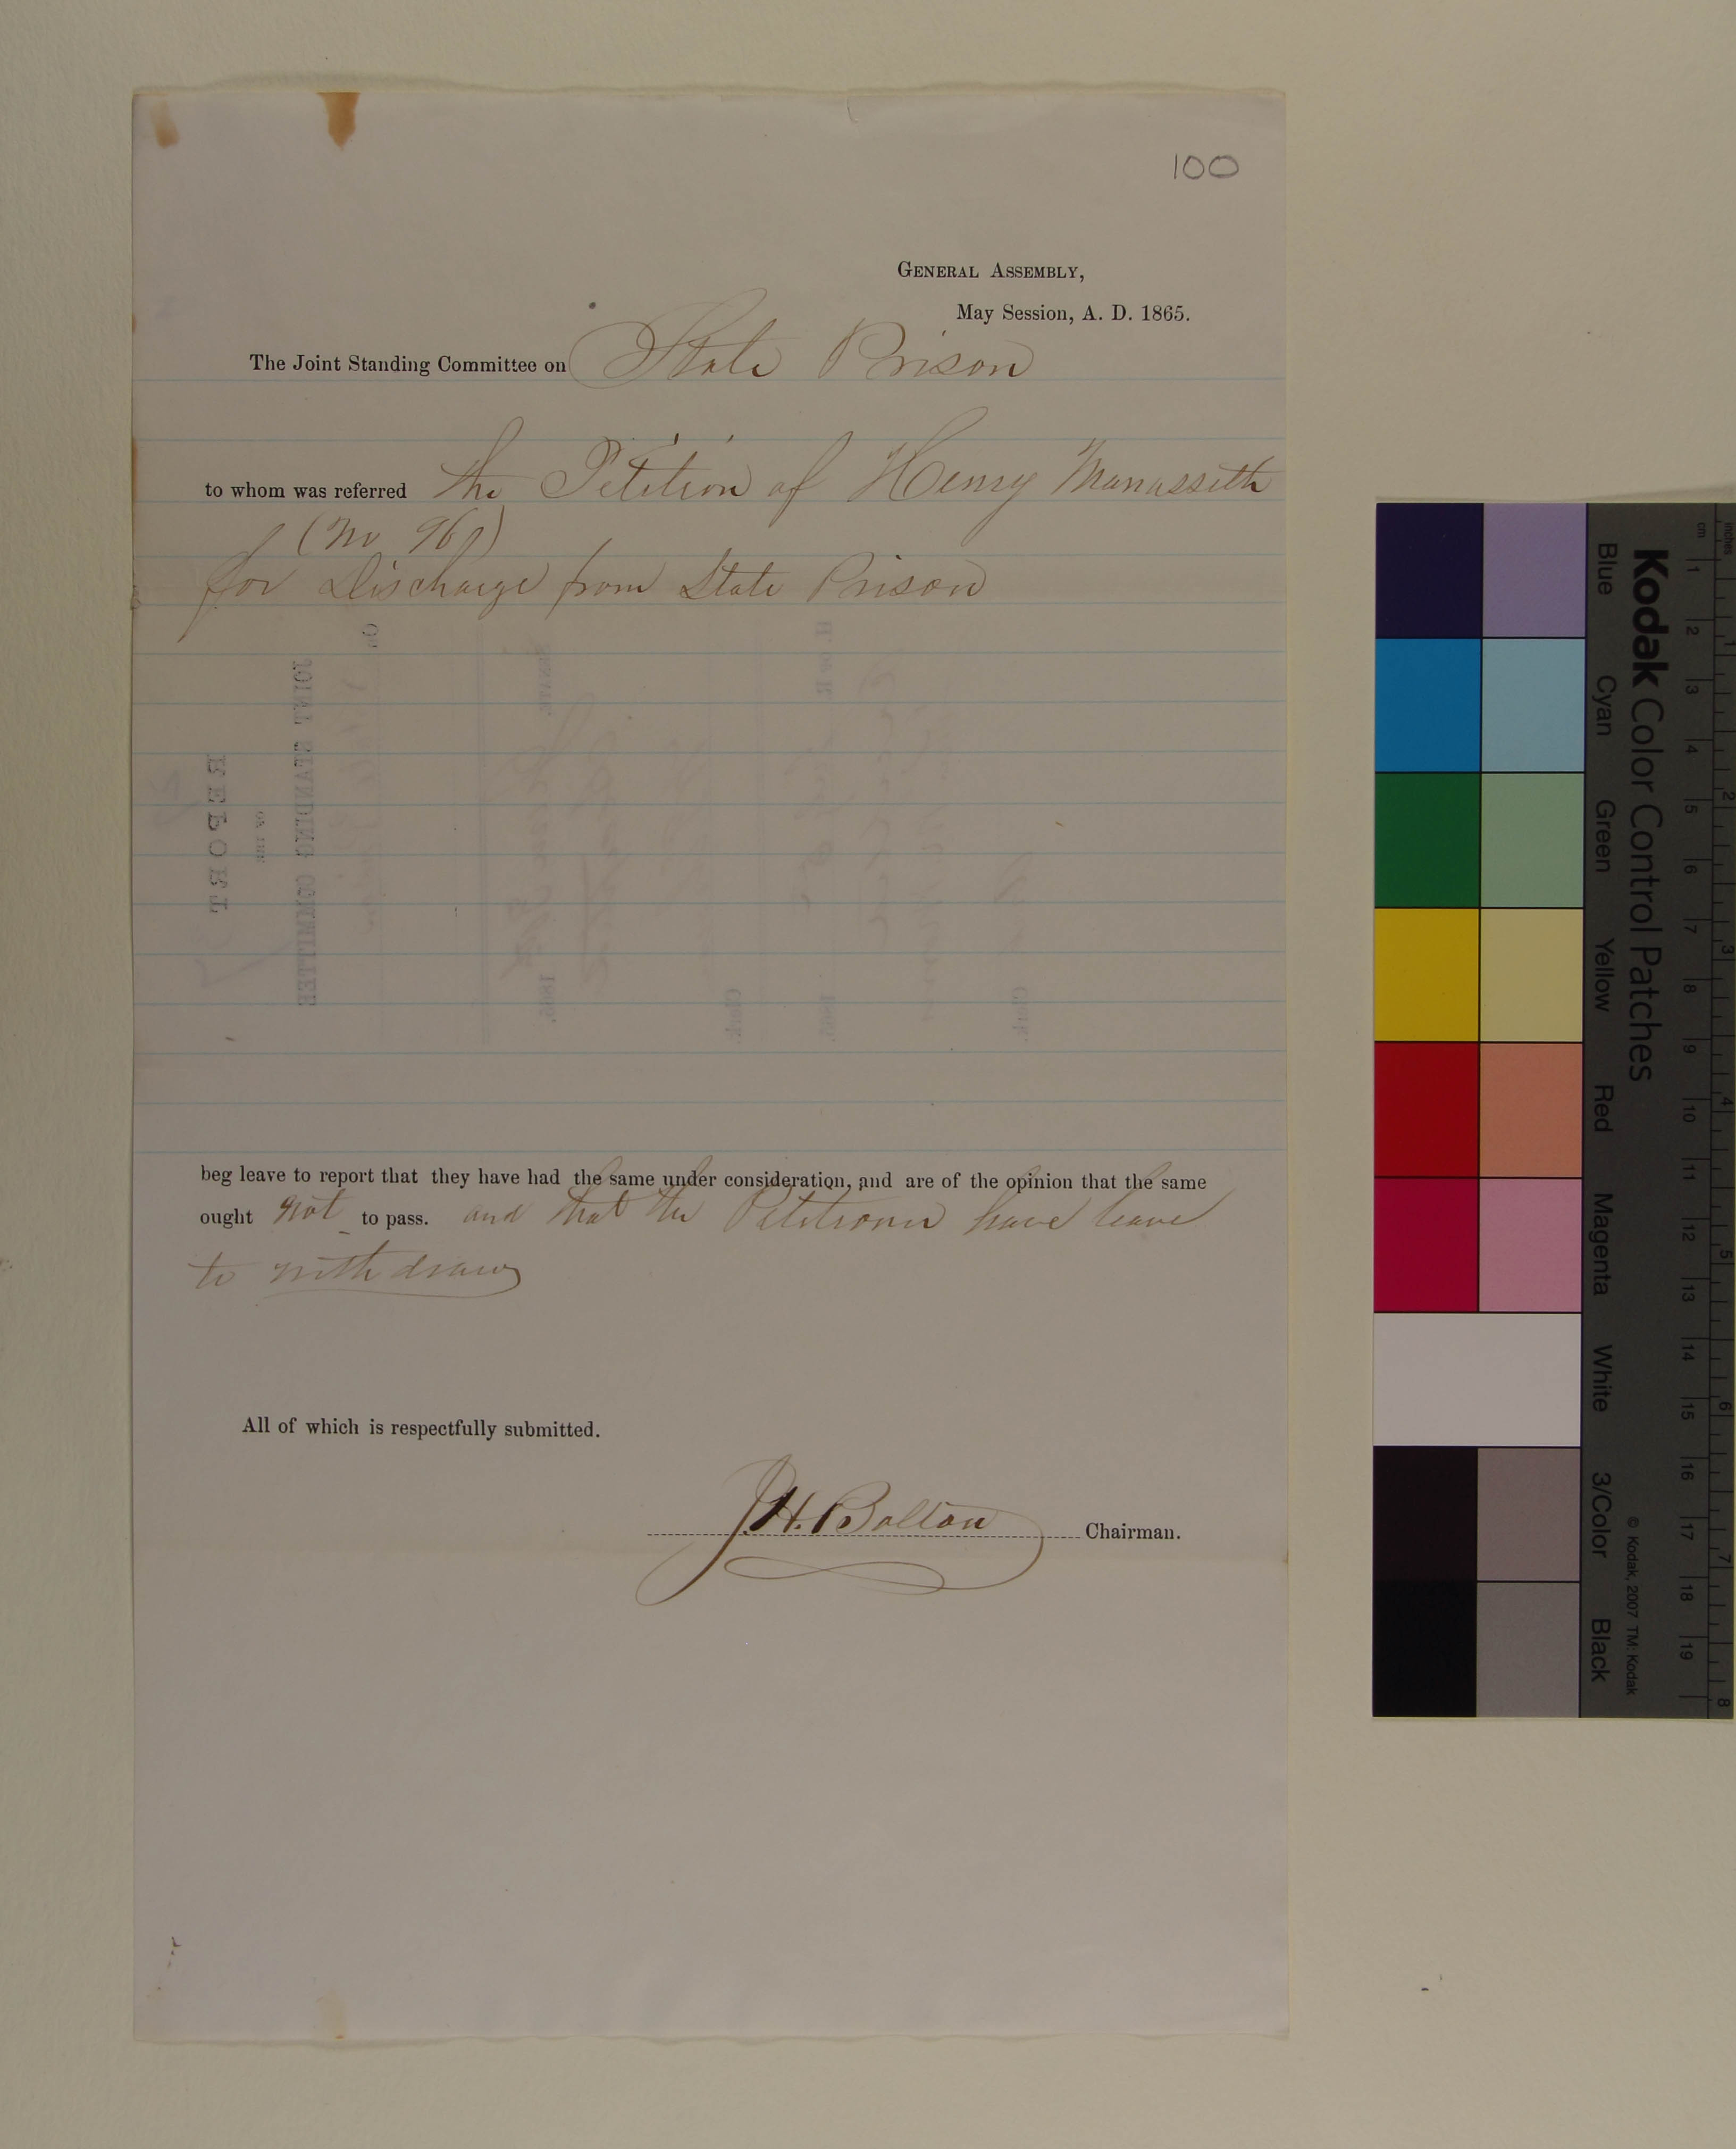 100
GENERAL ASSEMBLY,
May Session, A. D. 1865.
The Joint Standing Committee on State Prison
to whom was referred the Petition of Henry Manasseth
(No 96)
for Discharge from State Prison
OF
SENATE,
H. OF R.
JOINT STANDING COMMITTEE
OF THE
REPORT
1865.
Clerk.
1865.
Clerk.
beg leave to report that they have had the same under consideration, and are of the opinion that the same
ought not to pass. and that the Petitioner have leave
to withdraw
All of which is respectfully submitted.
J. H. Bolton Chairman.
Kodak Color Control Patches
Blue Cyan Green Yellow Red Magenta White 3/Color Black
© Kodak, 2007 TM: Kodak
inches 1 2 3 4 5 6 7 8
cm 1 2 3 4 5 6 7 8 9 10 11 12 13 14 15 16 17 18 19